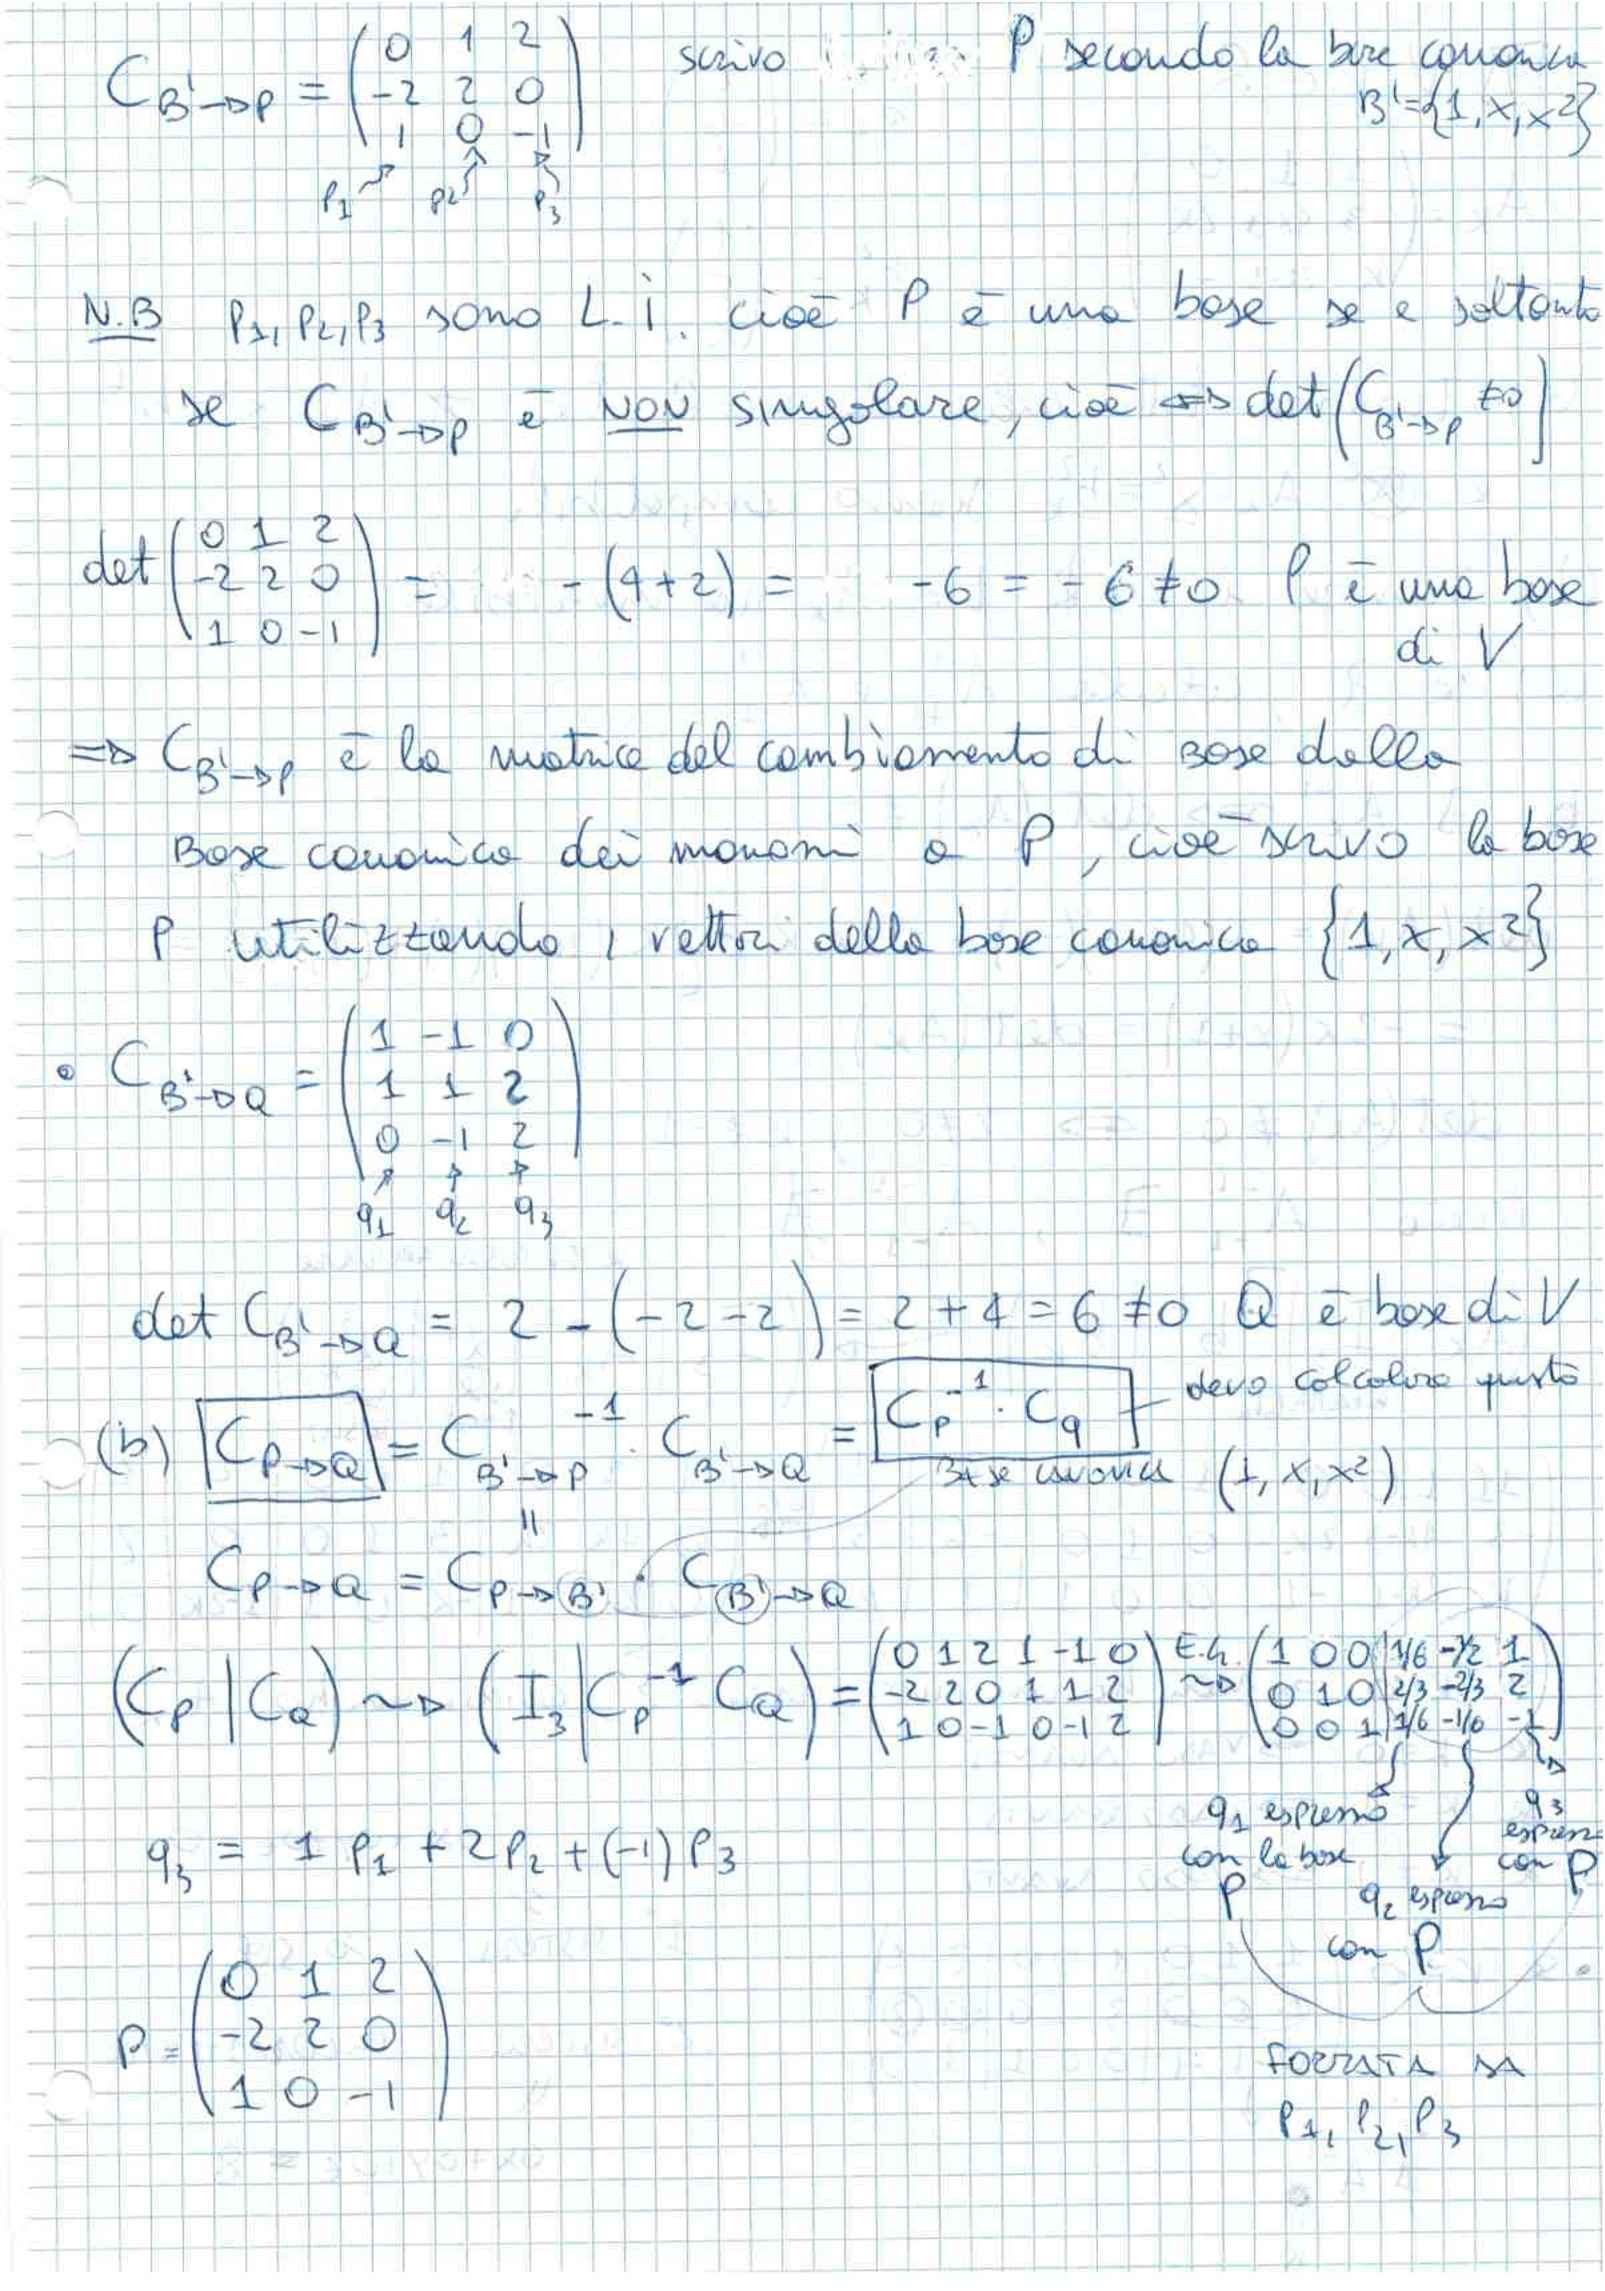 C_{B'→P} = (0 1 2 / -2 2 0 / 1 0 -1) scrivo P secondo la base canonica
B' = {1, x, x²}
p₁ p₂ p₃
N.B p₁, p₂, p₃ sono L.i. cioè P è una base se e soltanto
se C_{B'→P} è NON singolare, cioè ⇔ det(C_{B'→P} ≠0)
det (0 1 2 / -2 2 0 / 1 0 -1) = - (4+2) = -6 = -6 ≠ 0 P è una base
di V
⇒ C_{B'→P} è la matrice del cambiamento di base dalla
Base canonica dei monomi a P, cioè scrivo la base
P utilizzando i vettori della base canonica {1, x, x²}
• C_{B'→Q} = (1 -1 0 / 1 1 2 / 0 -1 2)
q₁ q₂ q₃
det C_{B'→Q} = 2 - (-2-2) = 2 + 4 = 6 ≠ 0 Q è base di V
(b) C_{P→Q} = C_{B'→P}⁻¹ · C_{B'→Q} = C_P⁻¹ · C_q devo calcolare questo
Base canonica (1, x, x²)
=
C_{P→Q} = C_{P→B'} · C_{B'→Q}
(C_P | C_Q) ⇝ (I₃ | C_P⁻¹ C_Q) = (0 1 2 1 -1 0 / -2 2 0 1 1 2 / 1 0 -1 0 -1 2) E.G. ⇝ (1 0 0 | 1/6 -7/2 1 / 0 1 0 | 2/3 -2/3 2 / 0 0 1 | 1/6 -1/6 -1)
q₁ espresso
con la base
P
q₂ espresso
con P
q₃
espresso
con P
q₃ = 1 p₁ + 2p₂ + (-1) p₃
P = (0 1 2 / -2 2 0 / 1 0 -1)
FORMATA DA
p₁, p₂, p₃